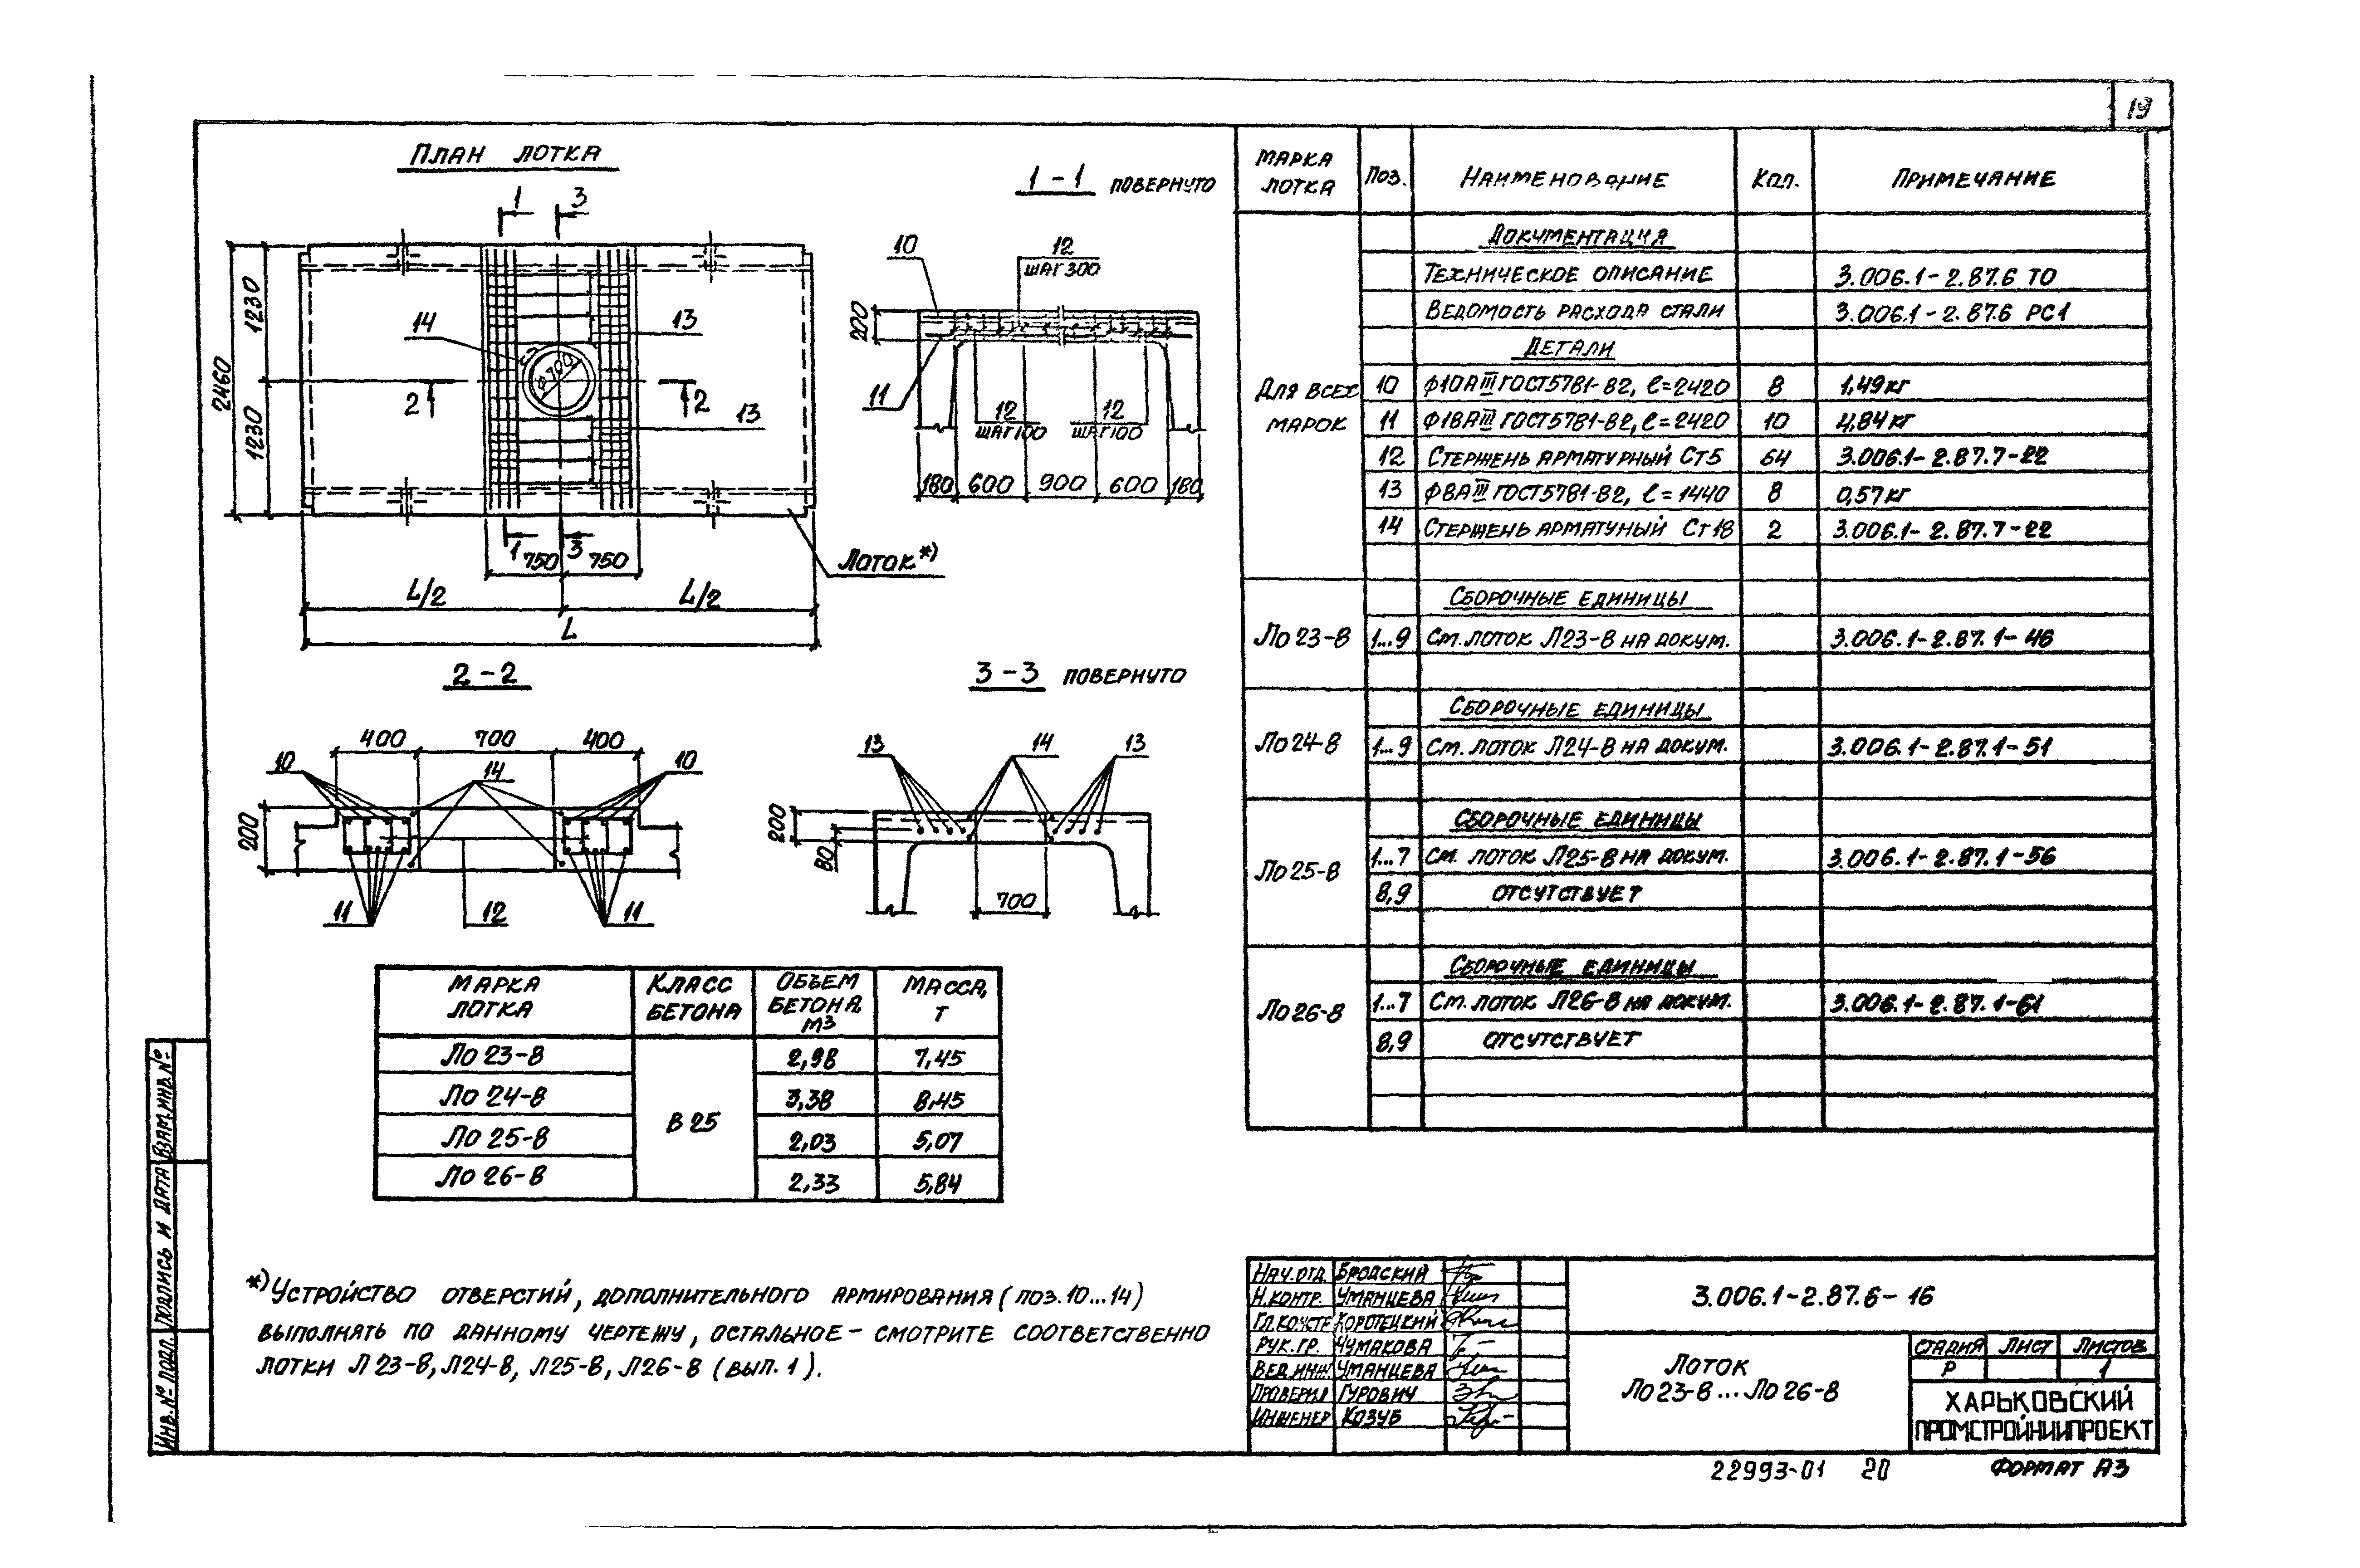 19
План лотка
1 3
2460
1230
1230
14
13
13
ϕ700
2 2
1 3
750 750
Лоток*)
L/2 L/2
L
1-1 повернуто
10 12
шаг 300
200
11
12 12
шаг 100 шаг 100
180 600 900 600 180
2-2
400 700 400
10 14 10
200
11 12 11
3-3 повернуто
13 14 13
200
80
700
Марка лотка Класс бетона Объем бетона, м3 Масса, т
Ло 23-8 В 25 2,98 7,45
Ло 24-8 3,38 8,45
Ло 25-8 2,03 5,07
Ло 26-8 2,33 5,84
*) Устройство отверстий, дополнительного армирования (поз. 10...14)
выполнять по данному чертежу, остальное - смотрите соответственно
лотки Л 23-8, Л24-8, Л25-8, Л26-8 (вып. 1).
Марка лотка Поз. Наименование Кол. Примечание
Документация
Техническое описание 3.006.1-2.87.6 ТО
Ведомость расхода стали 3.006.1-2.87.6 РС1
Детали
Для всех марок
10 ϕ10АIII ГОСТ5781-82, ℓ=2420 8 1,49кг
11 ϕ18АIII ГОСТ5781-82, ℓ=2420 10 4,84кг
12 Стержень арматурный Ст5 64 3.006.1-2.87.7-22
13 ϕ8АIII ГОСТ5781-82, ℓ=1440 8 0,57кг
14 Стержень арматуный Ст18 2 3.006.1-2.87.7-22
Сборочные единицы
Ло 23-8 1...9 См. лоток Л23-8 на докум. 3.006.1-2.87.1-46
Сборочные единицы
Ло 24-8 1...9 См. лоток Л24-8 на докум. 3.006.1-2.87.1-51
Сборочные единицы
Ло 25-8 1...7 См. лоток Л25-8 на докум. 3.006.1-2.87.1-56
8,9 отсутствует
Сборочные единицы
Ло 26-8 1...7 См. лоток Л26-8 на докум. 3.006.1-2.87.1-61
8,9 отсутствует
Нач. отд. Бродский
Н. контр. Уманцева
Гл. констр Коротецкий
Рук. гр. Чумакова
Вед. инж. Уманцева
Проверил Гурович
Инженер Козуб
3.006.1-2.87.6-16
Лоток
Ло 23-8...Ло 26-8
Стадия Лист Листов
Р 1
Харьковский
Промстройниипроект
22993-01 20 Формат А3
Взам. инв. №
Подпись и дата
Инв. № подл.